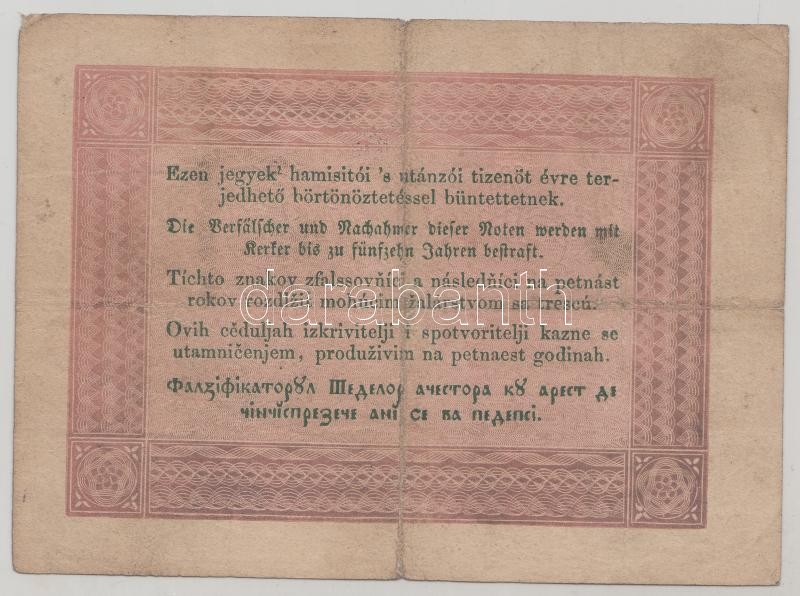 Ezen jegyek' hamisitói 's utánzói tizenöt évre ter-
jedhető börtönöztetéssel büntettetnek.
Die Verfälscher und Nachahmer dieser Noten werden mit
Kerker bis zu fünfzehn Jahren bestraft.
Tíchto znakov zfalssovňíci a následňíci na petnást
rokov rozďižiť mohúcim žalárstvom sa tresců.
darabanth
Ovih cěduljah izkrivitelji i spotvoritelji kazne se
utamničenjem, produživim na petnaest godinah.
Фалзіфікаторȣл Шеделор ачестора кȣ арест де
чінчіспрезече ані се ва педепсі.